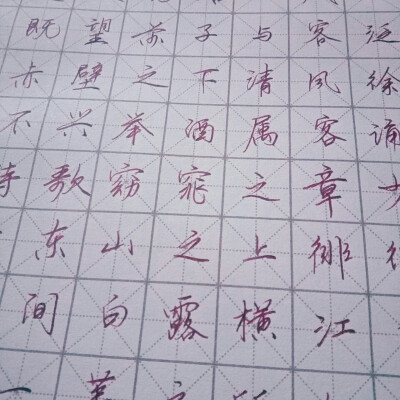 既望苏子与客泛
赤壁之下清风徐
不兴举酒属客诵
歌窈窕之章
东山之上徘
间白露横江